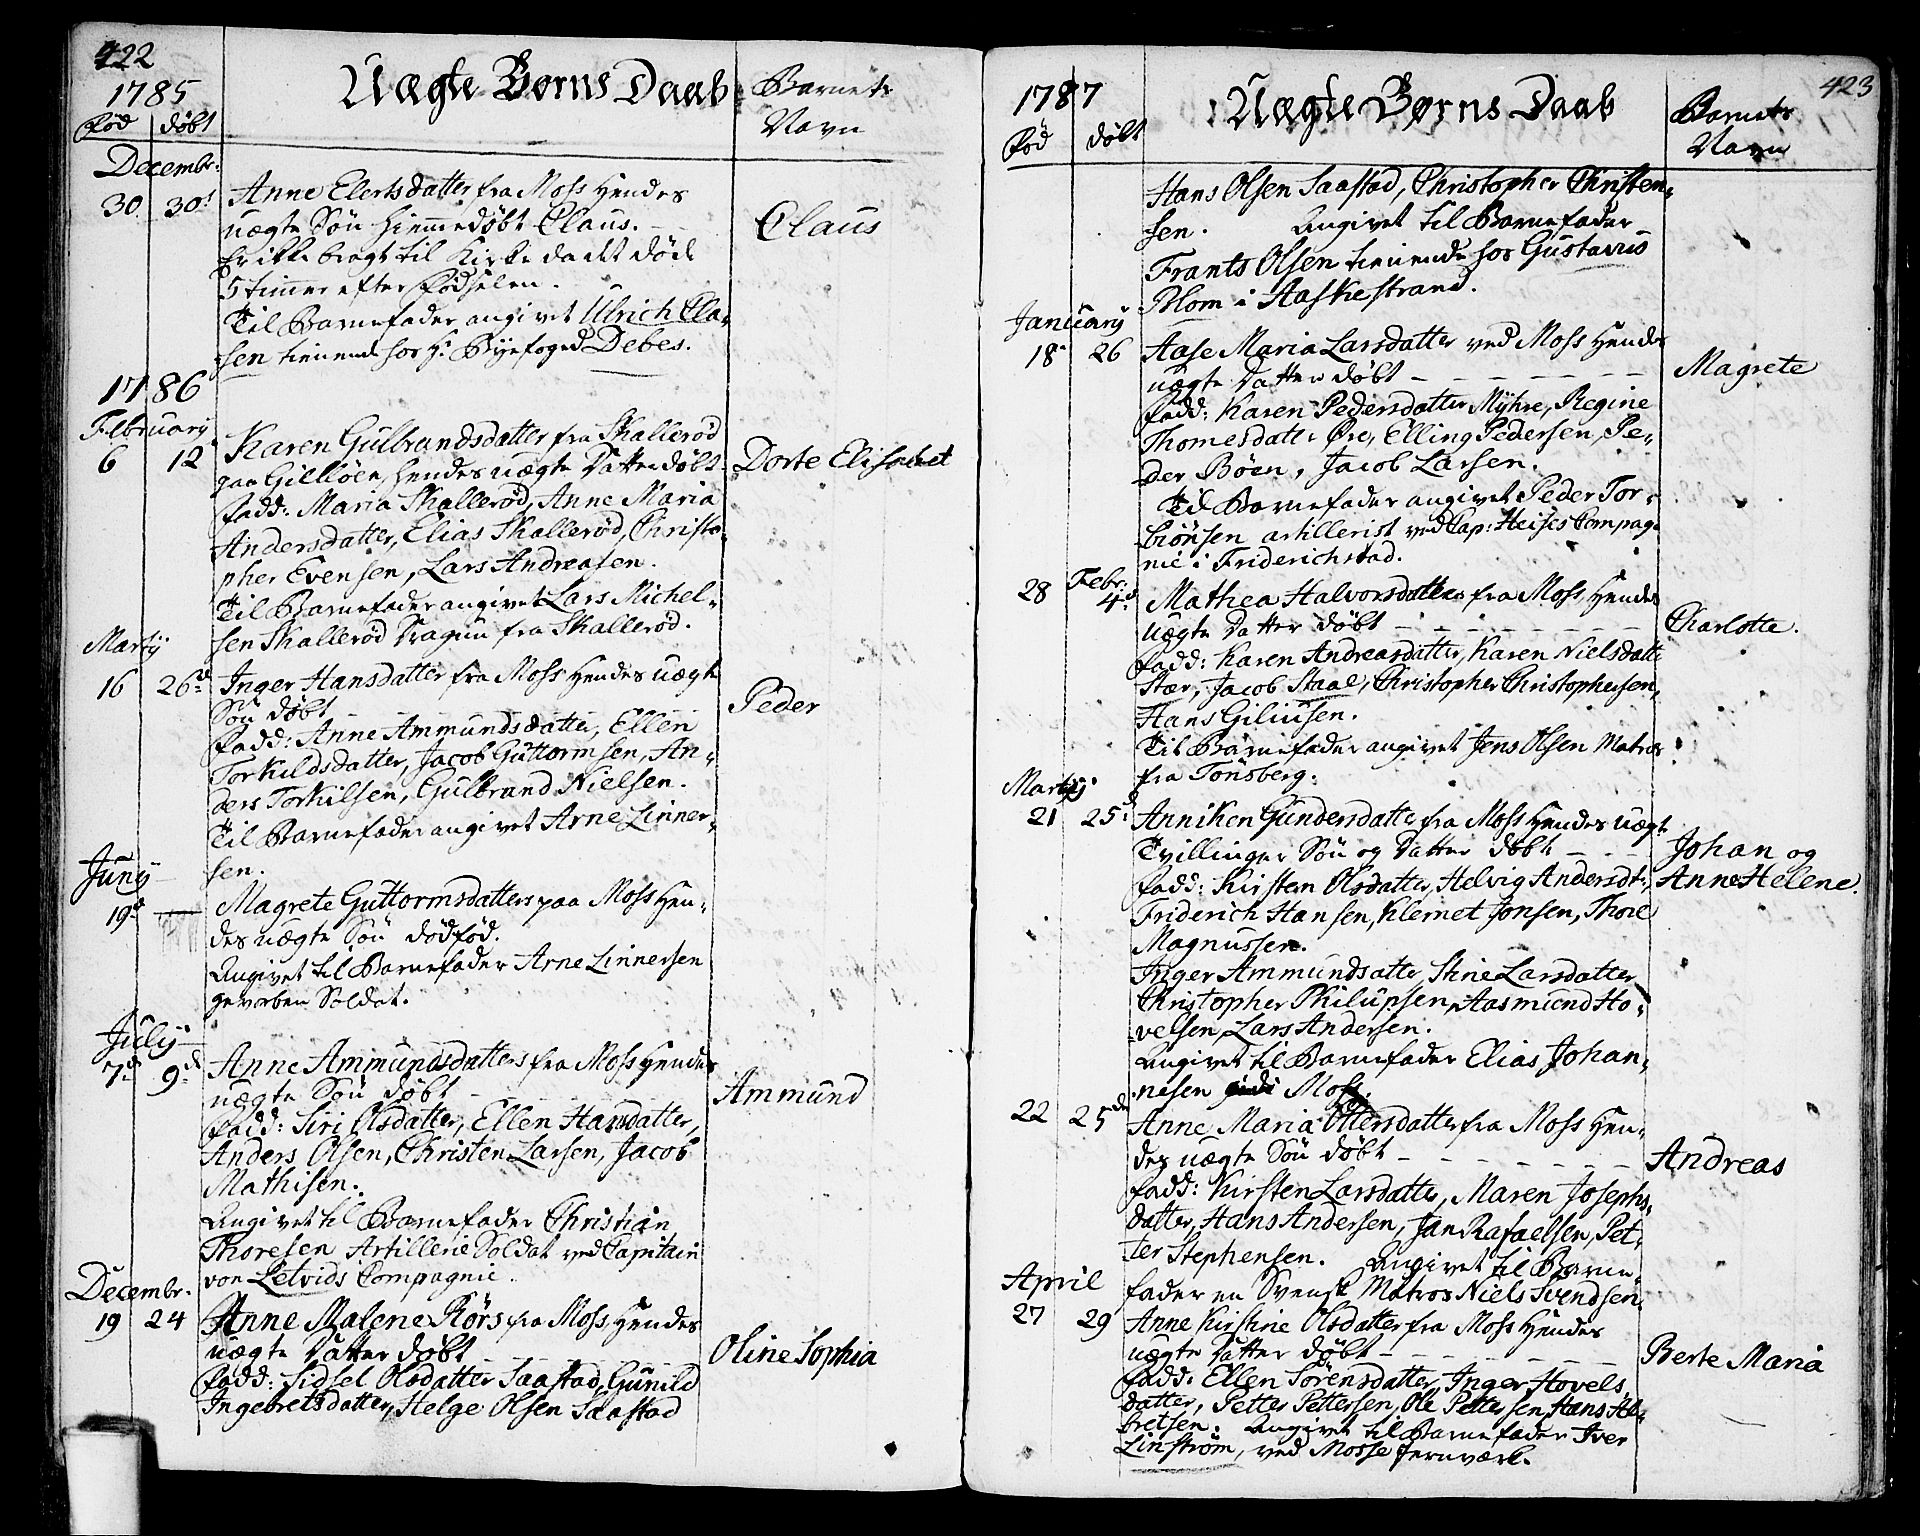 422
1785
Uægte Børns Daab
Barnets
Navn
Fød døbt
Decembr:
30 30t
Anne Elertsdatter fra Moss Hendes
uægte Søn hiemmedøbt Claus.
Claus
Er ikke bragt til Kirke da det døde
5 timer efter Fødselen.
Til Barnefader angivet Ulrich Cla-
sen tienende hos Hr Byefoged Debes.
1786
February
6 12
Karen Gulbrandsdatter fra Skallerød
paa Gilløen, Hendes uægte Datter døbt
Dorte Elisabet
Fadd: Maria Skallerød, Anne Maria
Andersdatter, Elias Skallerød, Christo-
pher Evensen, Lars Andreasen.
Til Barnefader angivet Lars Michel-
sen Skallerød Dragun fra Skallerød.
Martij
16 26d
Inger Hansdatter fra Moss Hendes uægte
Søn døbt
Peder
Fadd: Anne Ammundsdatter, Ellen
Torkildsdatter, Jacob Guttormsen, An-
ders Torkilsen, Gulbrand Nielsen.
Til Barnefader angivet Arne Linner-
sen.
Junij
19d
Magrete Guttormsdatters paa Moss Hen-
des uægte Søn dødfød.
Angivet til Barnefader Arne Linnersen
gevorben Soldat.
Julij
7d 9d
Anne Ammundsdatters fra Moss Hendes
uægte Søn døbt
Ammund
Fadd: Siri Olsdatter, Ellen Hansdatter,
Anders Olsen, Christen Larsen, Jacob
Mathisen.
Angivet til Barnefader Christian
Thoresen Artillerie Soldat ved Capitain
von Letvids Compagnie.
Decembr.
19 24
Anne Malene Rørs fra Moss Hendes
uægte Datter døbt
Oline Sophia
Fadd: Sidsel Olsdatter Saastad, Gunild
Ingebretsdatter, Helge Olsen Saastad
423
1787
Uægte Børns Daab
Barnets
Navn
Fød døbt
Hans Olsen Saastad, Christopher Christen-
sen. Angivet til Barnefader
Frants Olsen tienende hos Gustavus
Blom i Aaskestrand.
Januarij
18 26
Aase Maria Larsdatter ved Moss Hendes
uægte Datter døbt
Magrete
Fadd: Karen Pedersdatter Myhre, Regine
Thomesdatter Øre, Elling Pedersen, Pe-
der Böen, Jacob Larsen.
Til Barnefader angivet Peder Tor-
biönsen artillerist ved Cap: Heises Compag-
nie i Friderichstad.
28 Febr: 4d
Mathea Halvorsdatter fra Moss, Hendes
uægte Datter døbt
Charlotte.
Fadd: Karen Andreasdatter, Karen Nielsdatter
Stær, Jacob Staal, Christopher Christophersen,
Hans Giliusen.
Til Barnefader angivet Jens Olsen Matros
fra Tønsberg.
Martij
21 25d
Anniken Gundersdatter fra Moss Hendes uægte
Tvillinger Søn og Datter døbt
Johan og
Anne Helene.
Fadd: Kirsten Olsdatter, Helvig Andersdtr,
Friderich Hansen, Klemet Jonsen, Thore
Magnussen.
Inger Ammundsatter, Stine Larsdatter,
Christopher Philupsen, Aasmund Ho-
velsen, Lars Andersen.
Angivet til Barnefader Elias Johan-
nesen Moss.
22 25d
Anne Maria Ottersdatter fra Moss Hen-
des uægte Søn døbt
Andreas
Fadd: Kirsten Larsdatter, Maren Josephs-
datter, Hans Andersen, Jan Rafaelsen, Pet-
ter Stephensen. Angivet til Barne-
fader en Svensk Matros Niels Svendsen.
April
27 29
Anne Kirstine Olsdatter fra Moss Hendes
uægte Datter døbt
Berte Maria
Fadd: Ellen Sørensdatter, Inger Hovels
datter, Petter Pettersen, Ole Pettersen, Hans Al-
bretsen. Angivet til Barnefader Iver
Linstrøm, ved Mosse Jernværk.